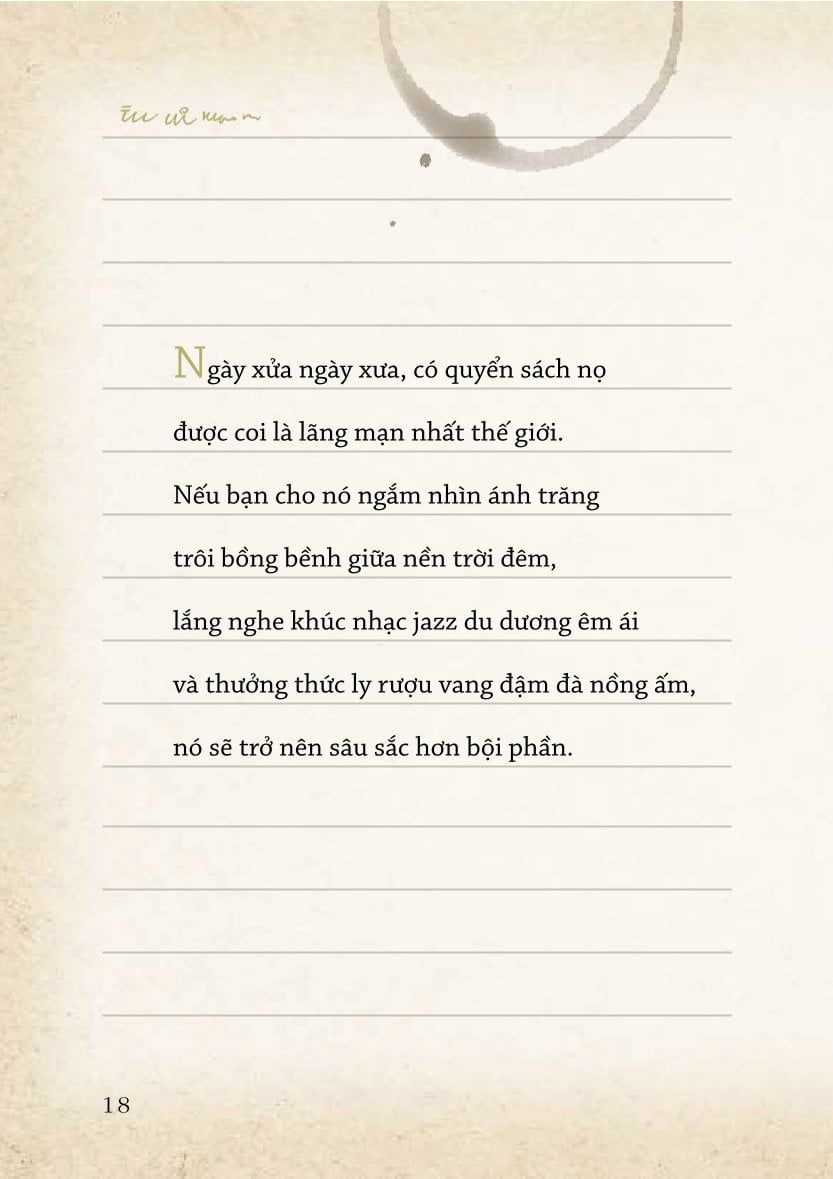 Ngày xửa ngày xưa, có quyển sách nọ
được coi là lãng mạn nhất thế giới.
Nếu bạn cho nó ngắm nhìn ánh trăng
trôi bồng bềnh giữa nền trời đêm,
lắng nghe khúc nhạc jazz du dương êm ái
và thưởng thức ly rượu vang đậm đà nồng ấm,
nó sẽ trở nên sâu sắc hơn bội phần.
18